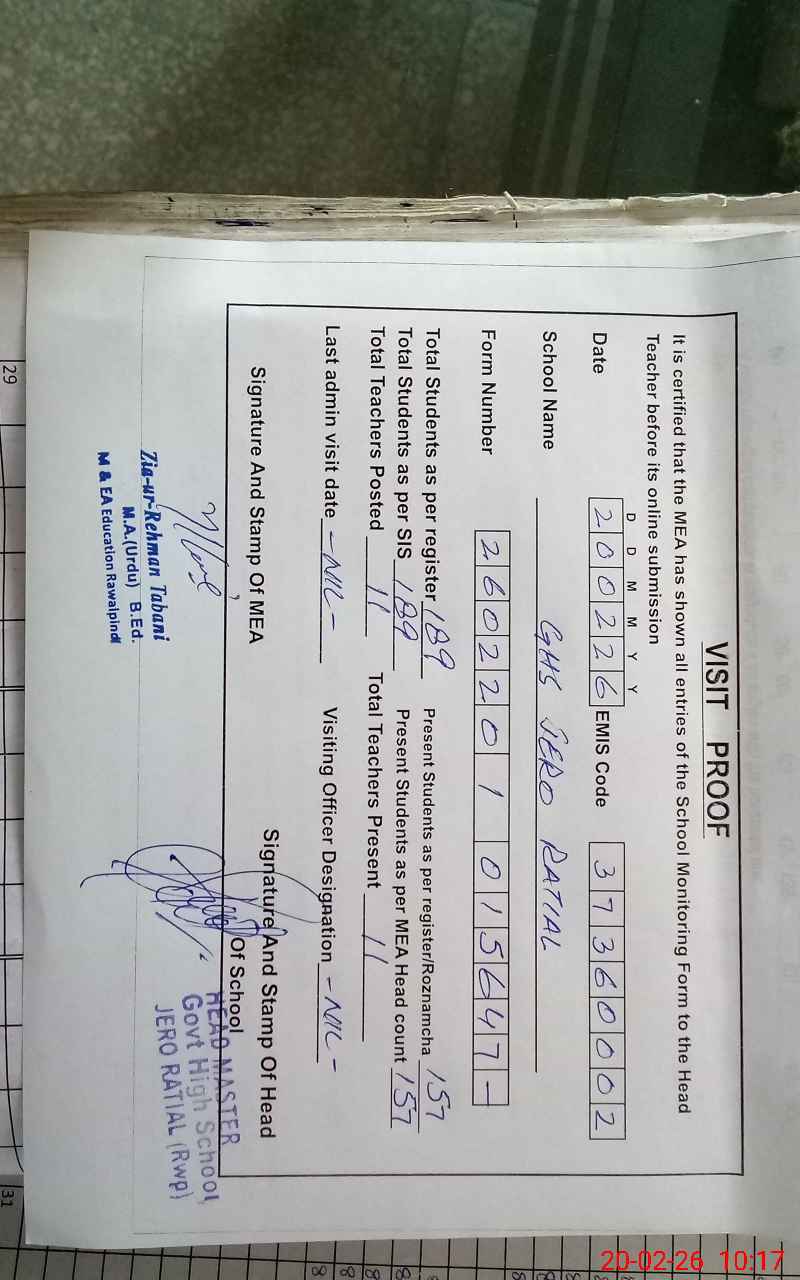 VISIT PROOF
It is certified that the MEA has shown all entries of the School Monitoring Form to the Head
Teacher before its online submission
D D M M Y Y
Date 200226 EMIS Code 37360002
School Name GHS JERO RATIAL
Form Number 2602201015647-
Total Students as per register 189 Present Students as per register/Roznamcha 157
Total Students as per SIS 189 Present Students as per MEA Head count 157
Total Teachers Posted 11 Total Teachers Present 11
Last admin visit date -NIL- Visiting Officer Designation -NIL-
Signature And Stamp Of MEA Signature And Stamp Of Head
Of School
HEAD MASTER
Govt High School
JERO RATIAL (Rwp)
Zia-ur-Rehman Tabani
M.A.(Urdu) B.Ed.
M & EA Education Rawalpindi
29
31
8
8
8
8
8
8
20-02-26 10:17